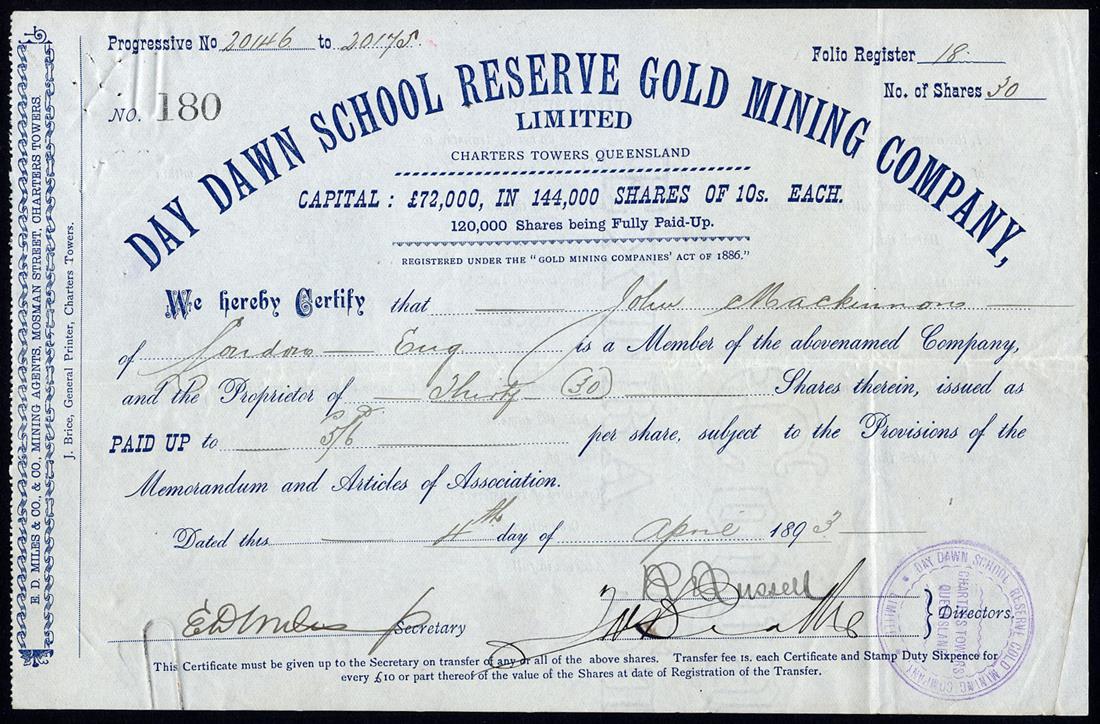 Progressive No 20146 to 20175.
Folio Register 18
No. of Shares 30
No. 180
DAY DAWN SCHOOL RESERVE GOLD MINING COMPANY,
LIMITED
CHARTERS TOWERS QUEENSLAND
CAPITAL : £72,000, IN 144,000 SHARES OF 10s. EACH.
120,000 Shares being Fully Paid-Up.
REGISTERED UNDER THE "GOLD MINING COMPANIES' ACT OF 1886."
We hereby Certify that John Mackinnons
of London Eng is a Member of the abovenamed Company,
and the Proprietor of Thirty (30) Shares therein, issued as
PAID UP to 3/6 per share, subject to the Provisions of the
Memorandum and Articles of Association.
Dated this 4th day of April 1893
E D Miles Secretary
Russell
Directors.
This Certificate must be given up to the Secretary on transfer of any or all of the above shares. Transfer fee 1s. each Certificate and Stamp Duty Sixpence for
every £10 or part thereof of the value of the Shares at date of Registration of the Transfer.
E. D. MILES & CO., & CO., MINING AGENTS, MOSMAN STREET, CHARTERS TOWERS.
J. Brice, General Printer, Charters Towers.
DAY DAWN SCHOOL RESERVE GOLD MINING COMPANY LIMITED
CHARTERS TOWERS
QUEENSLAND